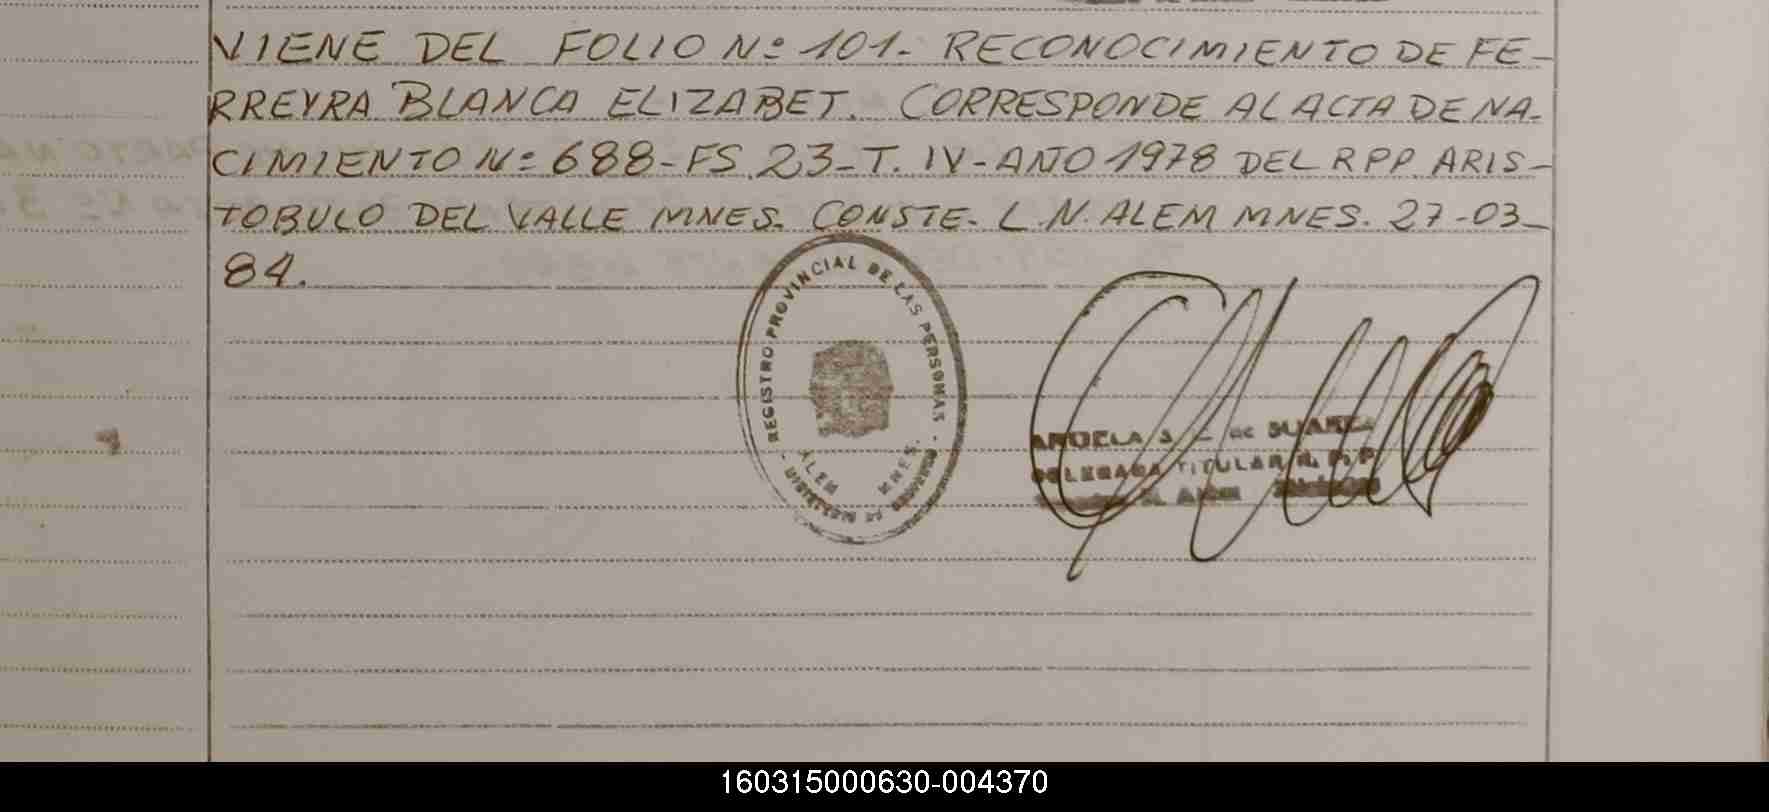 VIENE DEL FOLIO Nº 101- RECONOCIMIENTO DE FE-
RREYRA BLANCA ELIZABET. CORRESPONDE AL ACTA DE NA-
CIMIENTO Nº 688-FS. 23-T. IV-AÑO 1978 DEL RPP. ARIS-
TOBULO DEL VALLE MNES. CONSTE. L N. ALEM MNES. 27-03-
84.
REGISTRO PROVINCIAL DE LAS PERSONAS
ALEM MNES.
DE SUAREZ
TITULAR R. P. P.
160315000630-004370